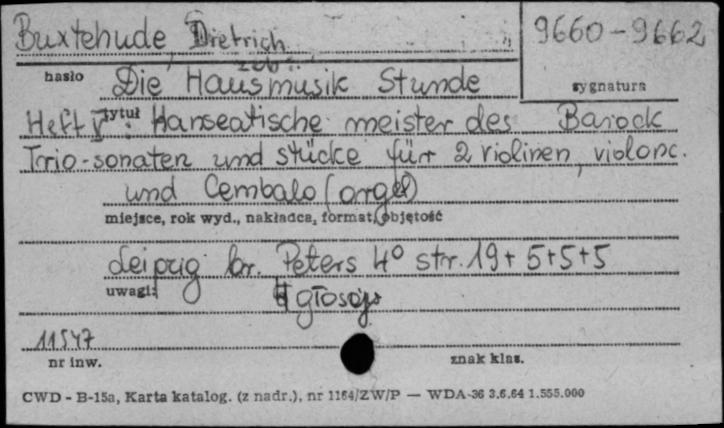 Buxtehude, Dietrich 9660-9662
zob.:
hasło Die Hausmusik Stunde sygnatura
Heft V tytuł : Hanseatische meister des Barock
Trio-sonaten und stücke für 2 violinen, violonc.
und Cembalo (orgel)
miejsce, rok wyd., nakładca, format, objętość
Leipzig br. Peters 4° str. 19+5+5+5
uwagi:
11547
nr inw. znak klas.
CWD - B-15a, Karta katalog. (z nadr.), nr 1164/ZW/P — WDA-36 3.6.64 1.555.000